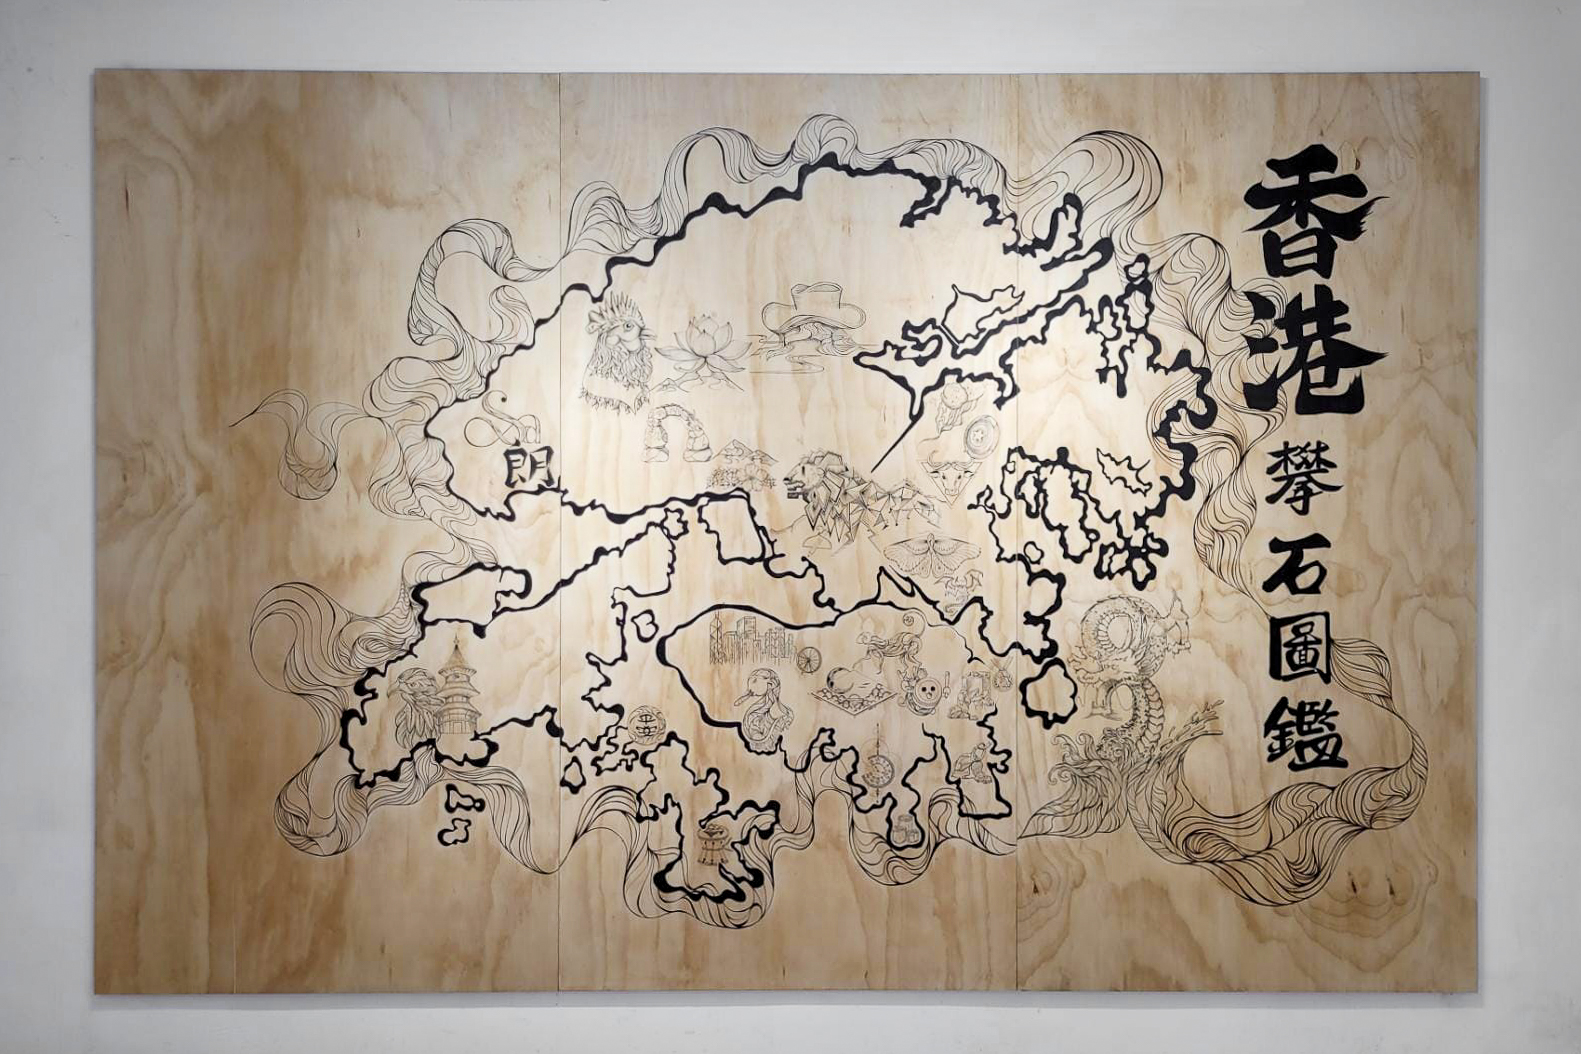 香港攀石圖鑑
朗